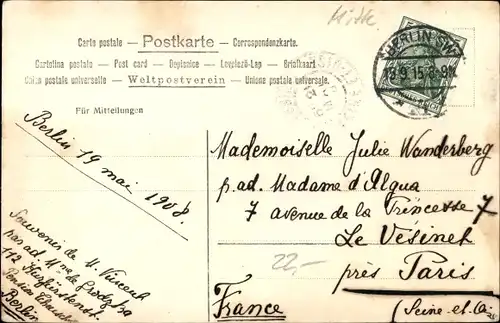 Carte postale – Postkarte – Correspondenzkarte.
Cartolina postale – Post card – Dopisnice – Levelező-Lap – Briefkaart
Carta postale universelle – Weltpostverein – Unione postale universale.
Für Mitteilungen
BERLIN SW
19.9.15 8-9N
Berlin
19 mai 1908.
Mademoiselle Julie Wanderberg
p. ad. Madame d'Algua
7 avenue de la Princesse 7
Le Vésinet
près Paris
France
(Seine-et-Oise
22,-
Souvenir de H. Vincent
par ad. Mme de
112
Pension
Berlin